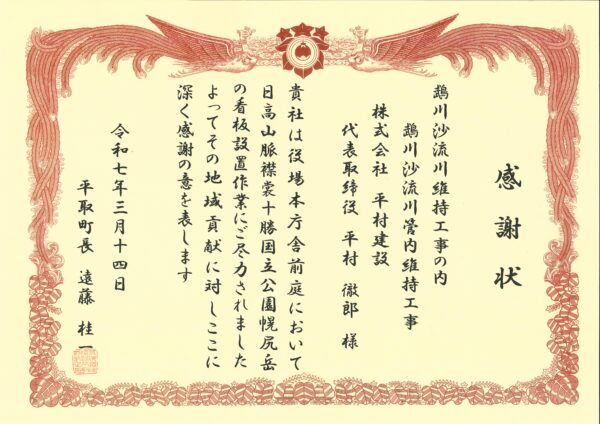 感謝状
鵡川沙流川維持工事の内
鵡川沙流川管内維持工事
株式会社 平村建設
代表取締役 平村 徹郎 様
貴社は役場本庁舎前庭において
日高山脈襟裳十勝国立公園幌尻岳
の看板設置作業にご尽力されました
よってその地域貢献に対しここに
深く感謝の意を表します
令和七年三月十四日
平取町長 遠藤 桂一